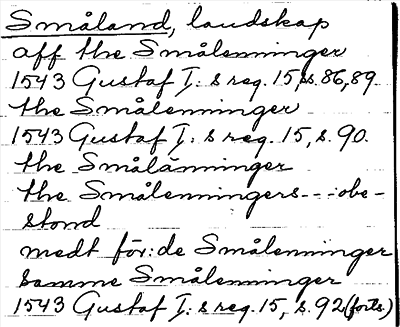 Småland, landskap
aff the Smålenninger
1543 Gustaf I:s reg. 15, s. 86, 89
the Smålenninger
1543 Gustaf I:s reg. 15, s. 90.
the Smålänninger
the Smålenningers---:obe-
stond
medt för:de Smålenninger
samme Smålenninger
1543 Gustaf I:s reg. 15, s. 92 (forts.)